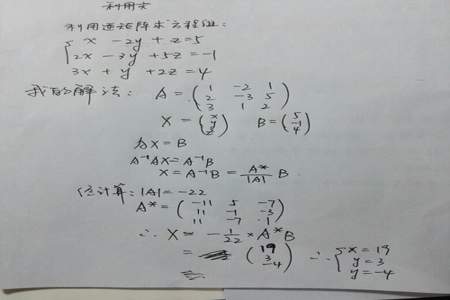 利用求
利用逆矩阵求方程组:
x - 2y + z = 5
2x - 3y + 5z = -1
3x + y + 2z = 4
我的解法: A = (1 -2 1
2 -3 5
3 1 2)
X = (x y z) B = (5 -1 4)
AX = B
A⁻¹AX = A⁻¹B
X = A⁻¹B = A*/|A| B
经计算: |A| = -22
A* = (-11 5 -7
11 -1 -3
11 -7 1)
∴ X = -1/22 × A*B
= (19 3 -4) ∴ { x = 19
y = 3
y = -4